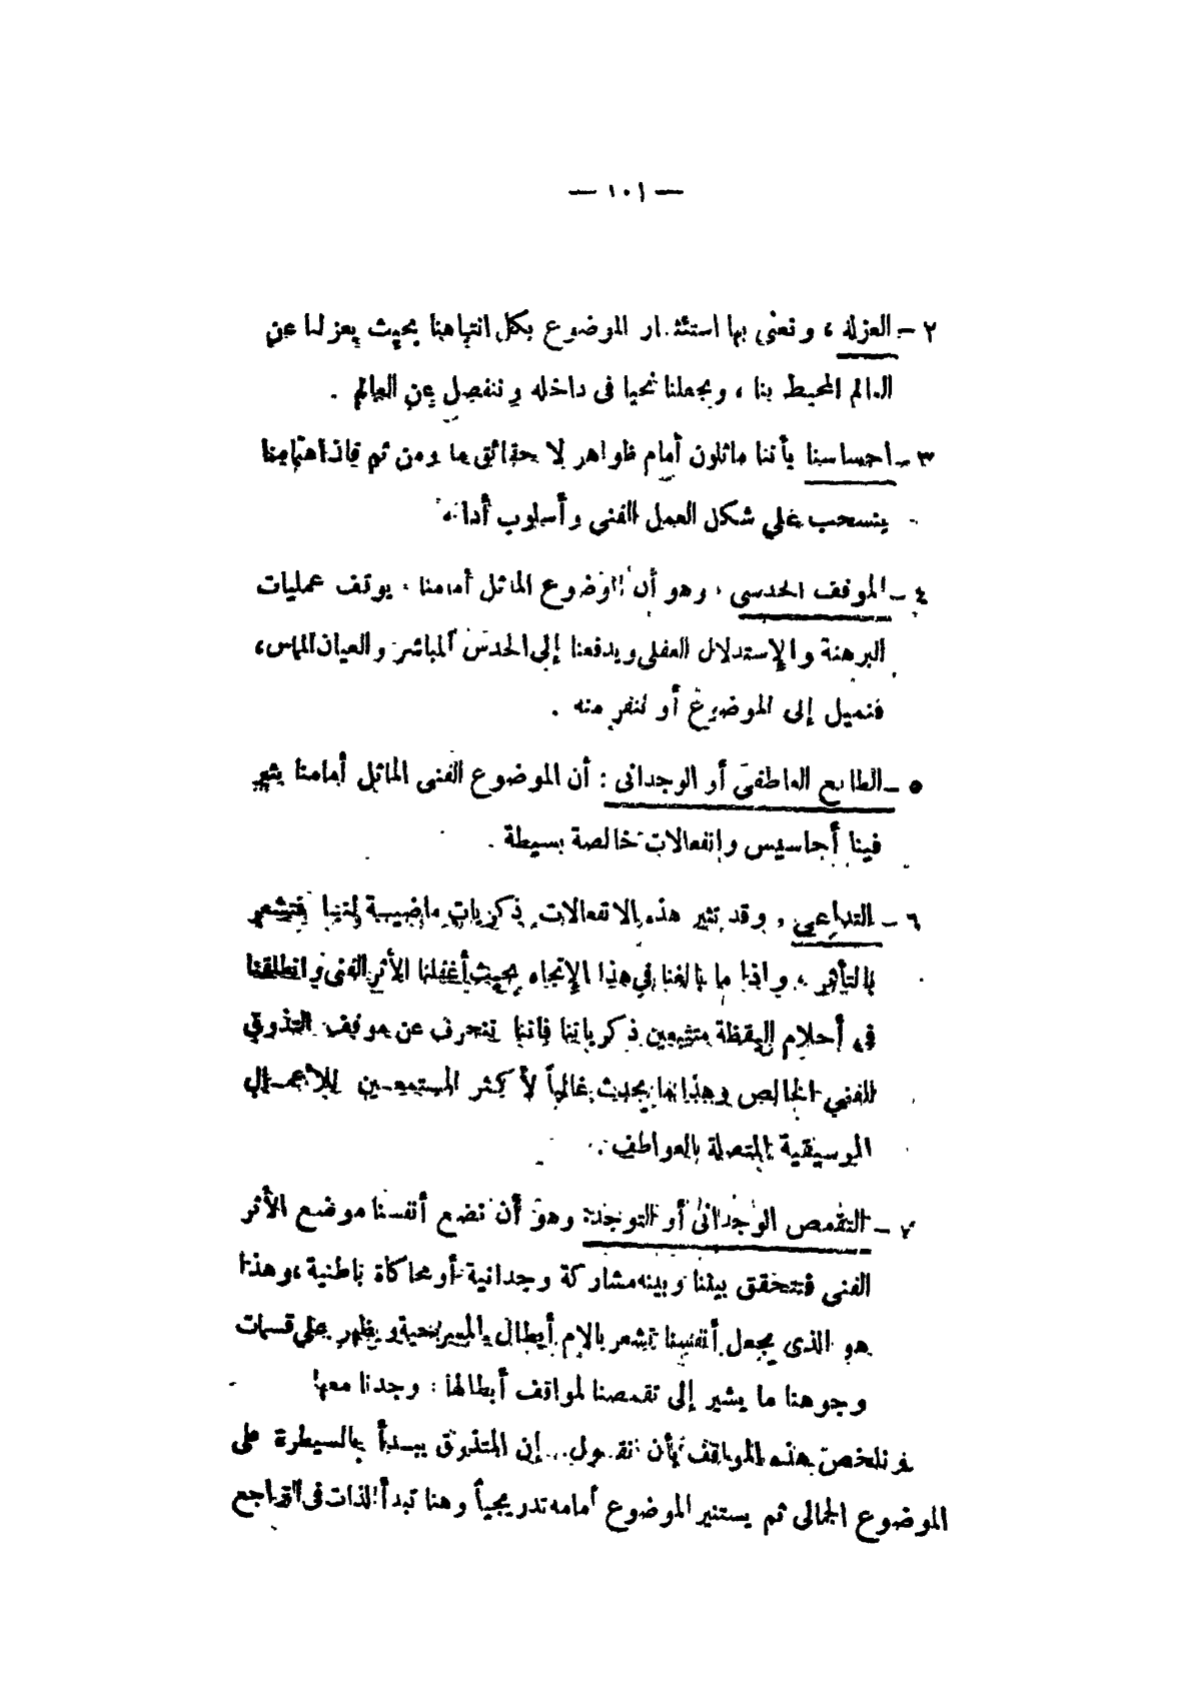 — ١٠١ —
٢ – العزلة ، ونعنى بها استئثار الموضوع بكل انتباهنا بحيث يعزلنا عن
العالم المحيط بنا ، ويجعلنا نحيا فى داخله وننفصل عن العالم .
٣ – احساسنا بأننا ماثلون أمام ظواهر لا حقائق ما ومن ثم فان اهتمامنا
ينسحب على شكل العمل الفنى وأسلوب أدائه
٤ – الموقف الحدسى ، وهو أن الموضوع الماثل أمامنا . يوقف عمليات
البرهنة والإستدلال العقلى ويدفعنا إلى الحدس المباشر والعيان الماس ،
فنميل إلى الموضوع أو ننفر منه .
٥ – الطابع العاطفى أو الوجدانى : أن الموضوع الفنى الماثل أمامنا يثير
فينا أحاسيس وإنفعالات خالصة بسيطة .
٦ – التداعى ، وقد تثير هذه الانفعالات ذكريات ماضيية لدينا فتشعر
بالتأثير ، واذا ما بالغنا فى هذا الإتجاه بحيث أغفلنا الأثر الفنى وانطلقنا
فى أحلام اليقظة متتبعين ذكرياتنا فاننا ننحرف عن موقف التذوق
الفنى الخالص وهذا ما يحدث غالباً لأكثر المستمعين للأعمال
الموسيقية المتصلة بالعواطف .
٧ – التقمص الوجدانى أو التوجد: وهو أن نضع أنفسنا موضع الأثر
الفنى فتتحقق بيننا وبينه مشاركة وجدانية أو محاكاة باطنية ، وهذا
هو الذى يجعل أنفسنا تشعر بالام أبطال المسرحية ويظهر على قسمات
وجوهنا ما يشير إلى تقمصنا لمواقف أبطالها : وجدنا معها
ونلخص هذه المواقف بأن نقول . إن المتذوق يبدأ بالسيطرة على
الموضوع الجمالى ثم يستنير الموضوع أمامه تدريجياً وهنا تبدأ الذات فى التراجع